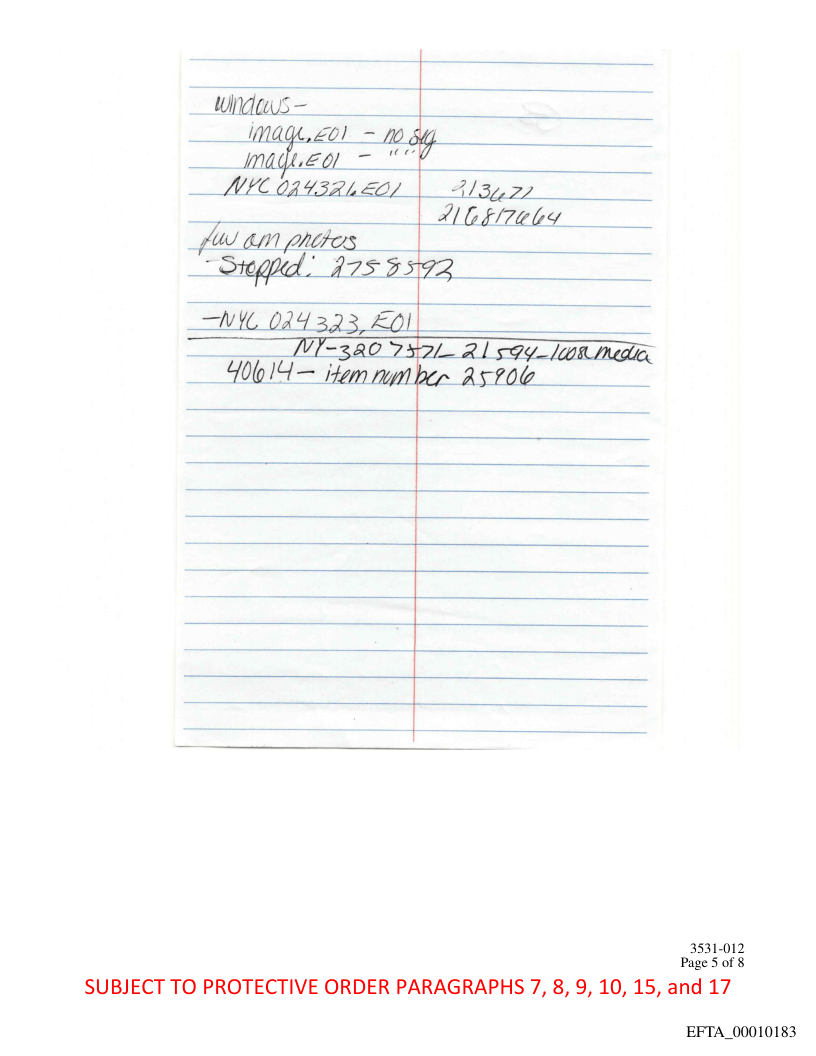 windows -
image.E01 - no sig
image.E01 - " "
NYC 024321.E01 213671
216817664
few am photos
- Stopped: 2758592
- NYC 024323.E01
NY-3207571_21594_1008 media
40614 - item number 25906
3531-012
Page 5 of 8
SUBJECT TO PROTECTIVE ORDER PARAGRAPHS 7, 8, 9, 10, 15, and 17
EFTA_00010183